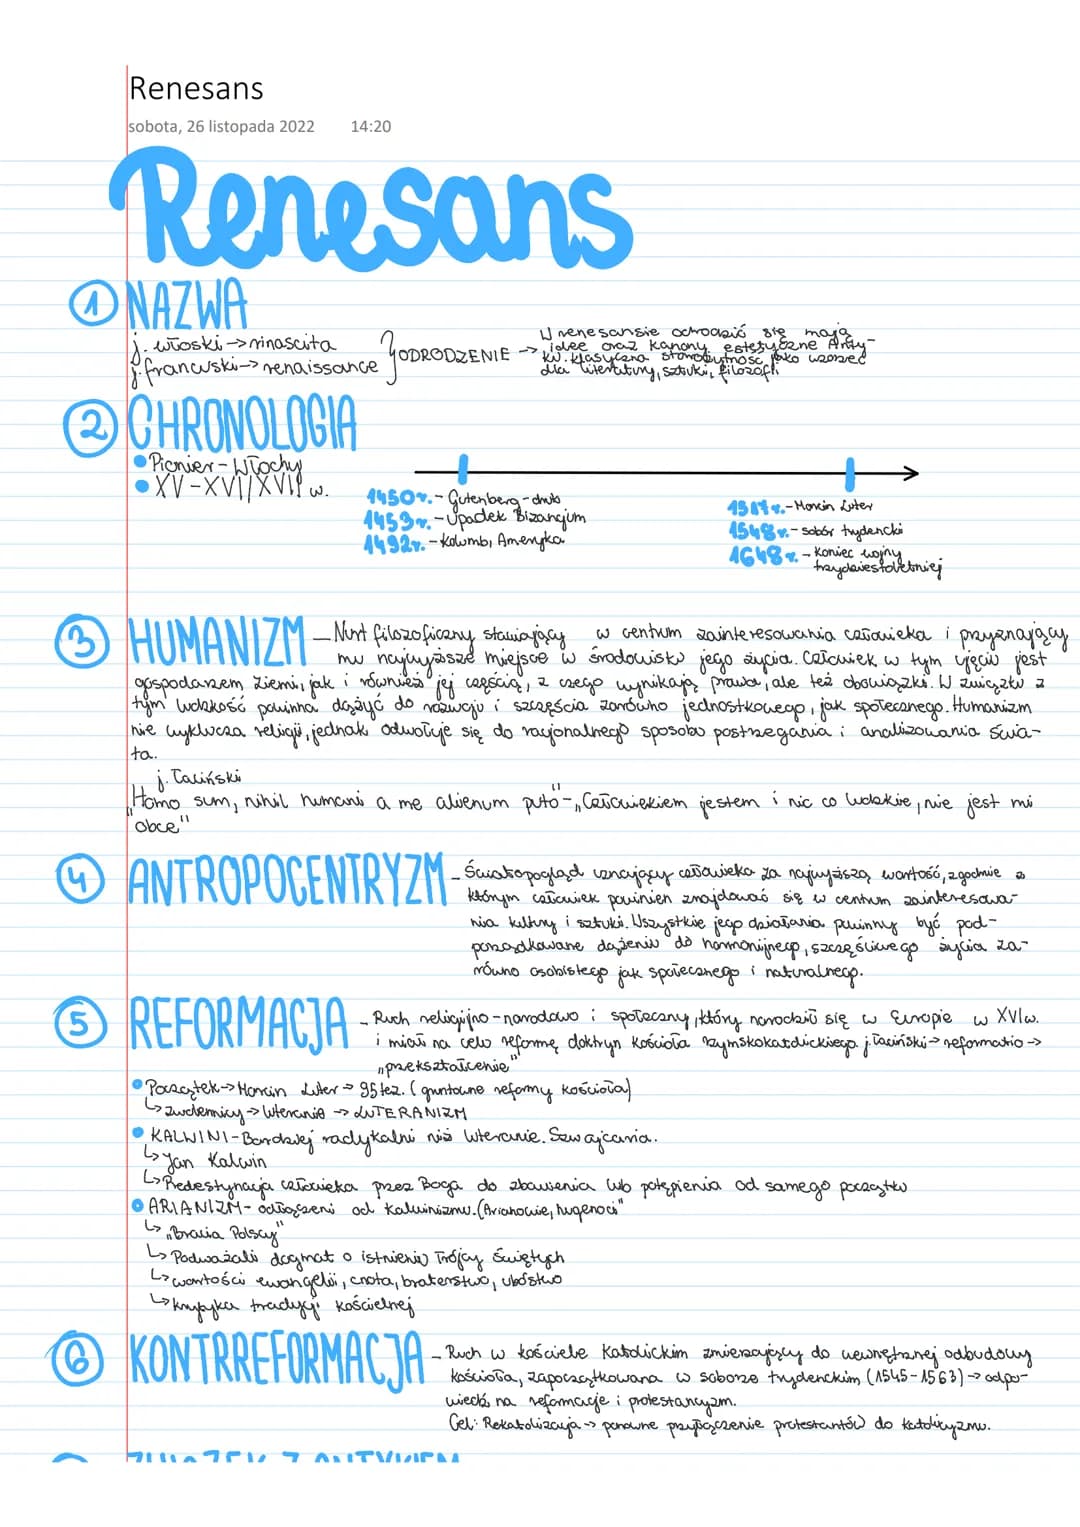 Renesans
sobota, 26 listopada 2022 14:20
Renesans
1 NAZWA
j. włoski → rinascita
j. francuski → renaissance
ODRODZENIE →
W renesansie odrodzić się mają
idee oraz kanony estetyczne Anty-
ku. klasyczna starożytność jako wzorzec
dla literatury, sztuki, filozofii
2 CHRONOLOGIA
• Pionier - Włochy
• XV - XVI/XVII w.
1450r. - Gutenberg - druk
1453r. - Upadek Bizancjum
1492r. - Kolumb, Ameryka
1517r. - Marcin Luter
1548r. - sobór trydencki
1648r. - Koniec wojny
trzydziestoletniej
3 HUMANIZM - Nurt filozoficzny stawiający w centrum zainteresowania człowieka i przyznający
mu najwyższe miejsce w środowisku jego życia. Człowiek w tym ujęciu jest
gospodarzem Ziemi, jak i również jej częścią, z czego wynikają prawa, ale też obowiązki. W związku z
tym ludzkość powinna dążyć do rozwoju i szczęścia zarówno jednostkowego, jak społecznego. Humanizm
nie wyklucza religii, jednak odwołuje się do racjonalnego sposobu postrzegania i analizowania świa-
ta.
j. Łaciński
"Homo sum, nihil humani a me alienum puto" - „Człowiekiem jestem i nic co ludzkie, nie jest mi
obce"
4 ANTROPOCENTRYZM - Światopogląd uznający człowieka za najwyższą wartość, zgodnie z
którym człowiek powinien znajdować się w centrum zainteresowa-
nia kultury i sztuki. Wszystkie jego działania powinny być pod-
porządkowane dążeniu do harmonijnego, szczęśliwego życia za-
równo osobistego jak społecznego i naturalnego.
5 REFORMACJA - Ruch religijno-narodowo i społeczny, który narodził się w Europie w XVIw.
i miał na celu reformę doktryn Kościoła rzymskokatolickiego. j. łaciński → reformatio →
„przekształcenie"
• Początek → Marcin Luter → 95 tez. (gruntowne reformy kościoła)
↳ zwolennicy → luteranie → LUTERANIZM
• KALWINI - Bardziej radykalni niż luteranie. Szwajcaria.
↳ Jan Kalwin
↳ Predestynacja człowieka przez Boga do zbawienia lub potępienia od samego początku
• ARIANIZM - odłączeni od kalwinizmu. (Arianowie, hugenoci"
↳ „Bracia Polscy"
↳ Podważali dogmat o istnieniu Trójcy Świętych
↳ wartości ewangelii, cnota, braterstwo, ubóstwo
↳ krytyka tradycji kościelnej
6 KONTRREFORMACJA - Ruch w kościele Katolickim zmierzający do wewnętrznej odbudowy
kościoła, zapoczątkowana w soborze trydenckim (1545-1563) → odpo-
wiedź na reformacje i protestantyzm.
Cel: Rekatolizacja → ponowne przyłączenie protestantów do katolicyzmu.
ZWIĄZEK Z ANTYKIEM